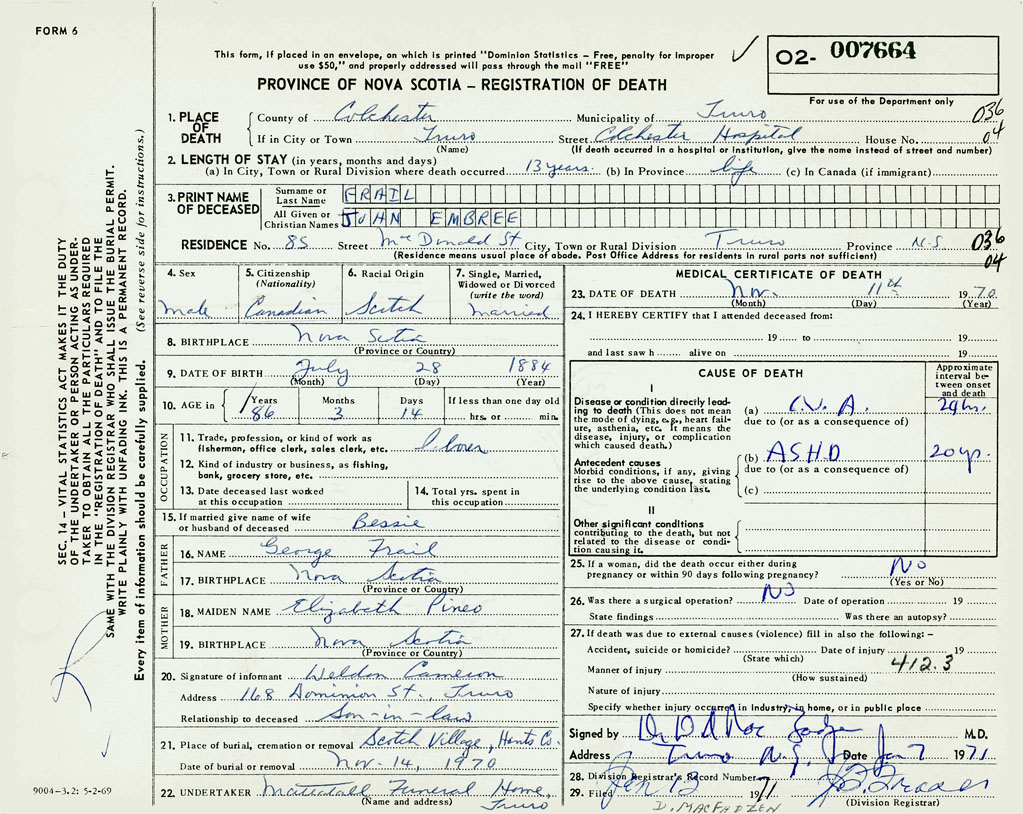 FORM 6
This form, if placed in an envelope, on which is printed "Dominion Statistics – Free, penalty for improper
use $50," and properly addressed will pass through the mail "FREE"
PROVINCE OF NOVA SCOTIA – REGISTRATION OF DEATH
02- 007664
For use of the Department only
1. PLACE OF DEATH County of Colchester Municipality of Truro 036
If in City or Town Truro Street Colchester Hospital House No. 04
(Name) (If death occurred in a hospital or institution, give the name instead of street and number)
2. LENGTH OF STAY (in years, months and days)
(a) In City, Town or Rural Division where death occurred 13 years. (b) In Province life (c) In Canada (if immigrant)
3. PRINT NAME OF DECEASED Surname or Last Name FRAIL
All Given or Christian Names JOHN EMBREE
RESIDENCE No. 85 Street McDonald St City, Town or Rural Division Truro Province N.S 036
(Residence means usual place of abode. Post Office Address for residents in rural parts not sufficient) 04
4. Sex Male
5. Citizenship (Nationality) Canadian
6. Racial Origin Scotch
7. Single, Married, Widowed or Divorced (write the word) Married
8. BIRTHPLACE Nova Scotia
(Province or Country)
9. DATE OF BIRTH July 28 1884
(Month) (Day) (Year)
10. AGE in Years 86 Months 3 Days 14 If less than one day old hrs. or min.
OCCUPATION
11. Trade, profession, or kind of work as
fisherman, office clerk, sales clerk, etc.
12. Kind of industry or business, as fishing,
bank, grocery store, etc.
13. Date deceased last worked
at this occupation
14. Total yrs. spent in
this occupation
15. If married give name of wife
or husband of deceased Bessie
FATHER
16. NAME George Frail
17. BIRTHPLACE Nova Scotia
(Province or Country)
MOTHER
18. MAIDEN NAME Elizabeth Pineo
19. BIRTHPLACE Nova Scotia
(Province or Country)
20. Signature of informant Weldon Cameron
Address 168 Dominion St. Truro
Relationship to deceased Son-in-law
21. Place of burial, cremation or removal Scotch Village, Hants Co.
Date of burial or removal Nov. 14, 1970
22. UNDERTAKER Mattatall Funeral Home,
(Name and address) Truro
MEDICAL CERTIFICATE OF DEATH
23. DATE OF DEATH Nov. 11th 1970
(Month) (Day) (Year)
24. I HEREBY CERTIFY that I attended deceased from:
19 to 19
and last saw h alive on 19
CAUSE OF DEATH
Approximate interval between onset and death
I
Disease or condition directly leading to death (This does not mean the mode of dying, e.g., heart failure, asthenia, etc. It means the disease, injury, or complication which caused death.)
(a) C.V.A.
due to (or as a consequence of)
Antecedent causes
Morbid conditions, if any, giving rise to the above cause, stating the underlying condition last.
(b) ASHD 20 yrs.
due to (or as a consequence of)
(c)
II
Other significant conditions
contributing to the death, but not related to the disease or condition causing it.
25. If a woman, did the death occur either during
pregnancy or within 90 days following pregnancy? No
(Yes or No)
26. Was there a surgical operation? No Date of operation 19
State findings Was there an autopsy?
27. If death was due to external causes (violence) fill in also the following: –
Accident, suicide or homicide? Date of injury 19
(State which) 412.3
Manner of injury
(How sustained)
Nature of injury
Specify whether injury occurred in industry, in home, or in public place
Signed by Dr D M.D.
Address Truro N.S. Date Jan 7 1971
28. Division Registrar's Record Number
29. Filed Jan 13 1971
(Division Registrar)
D. MACFADZEN
SEC. 14 – VITAL STATISTICS ACT MAKES IT THE DUTY
OF THE UNDERTAKER OR PERSON ACTING AS UNDER-
TAKER TO OBTAIN ALL THE PARTICULARS REQUIRED
IN THE "REGISTRATION OF DEATH" AND TO FILE THE
SAME WITH THE DIVISION REGISTRAR WHO SHALL ISSUE THE BURIAL PERMIT.
WRITE PLAINLY WITH UNFADING INK. THIS IS A PERMANENT RECORD.
Every item of information should be carefully supplied. (See reverse side for instructions.)
9004-3.2: 5-2-69